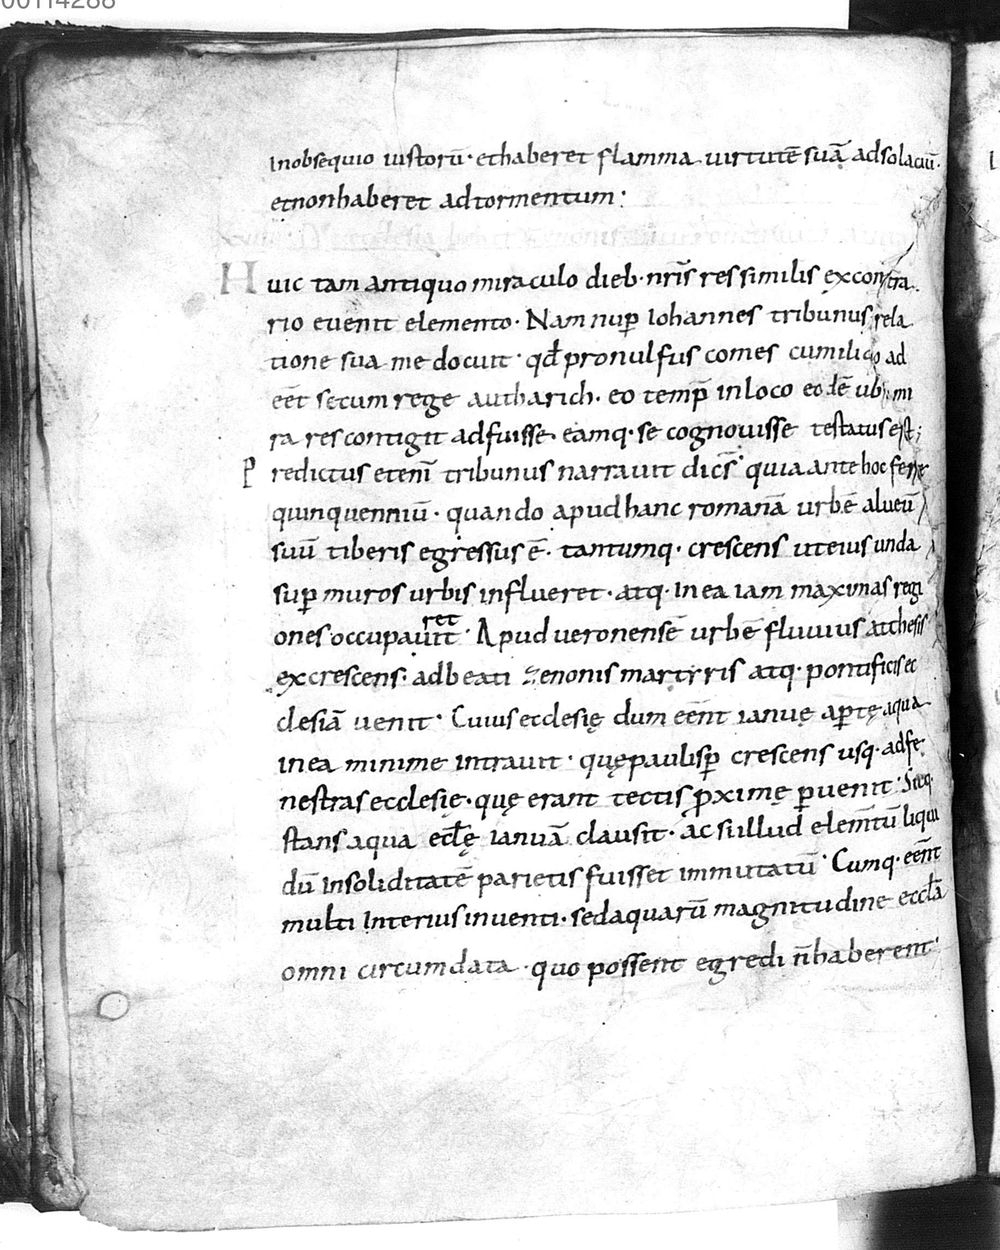 00114288
inobsequio iustorū· ethaberet flamma uirtutē suā adsolaciū·
etnonhaberet adtormentum:
Huic tam antiquo miraculo dieb· nr̄is res similis excontra
rio euenit elemento· Nam nup̄ Iohannes tribunus rela
tione sua me docuit· qd̄ pronulfus comes cum ili ad
eēt secum rege autharich· eo temp̄ inloco eodē ubi mi
ra res contigit adfuisse eamq· se cognouisse testatus est;
Predictus etenī tribunus narrauit dic̄s· quia ante hoc ferme
quinquenniū· quando apud hanc romanā urbē alueū
suū tiberis egressus ē· tantumq· crescens ut eius unda
sup̄ muros urbis influeret· atq· in ea iam maximas regi
ones occupauit ret· Apud ueronensē urbē fluuius athesis
excrescens· adbeati zenonis martyris atq· pontificis ec
clesiā uenit· Cuius ecclesię dum eēnt ianuę ap̄tę aqua
in ea minime intrauit· quę paulisp̄ crescens usq· adfe
nestras ecclesię· quę erant tectis ꝓximę ꝑuenit· Sicq·
stans aqua eccl̄ę ianuā clausit· ac si illud elem̄tū liqui
dū insoliditatē parietis fuisset immutatū· Cumq· eēnt
multi interius inuenti· sed aquarū magnitudine eccl̄a
omni circumdata· quo possent egredi n̄ haberent·